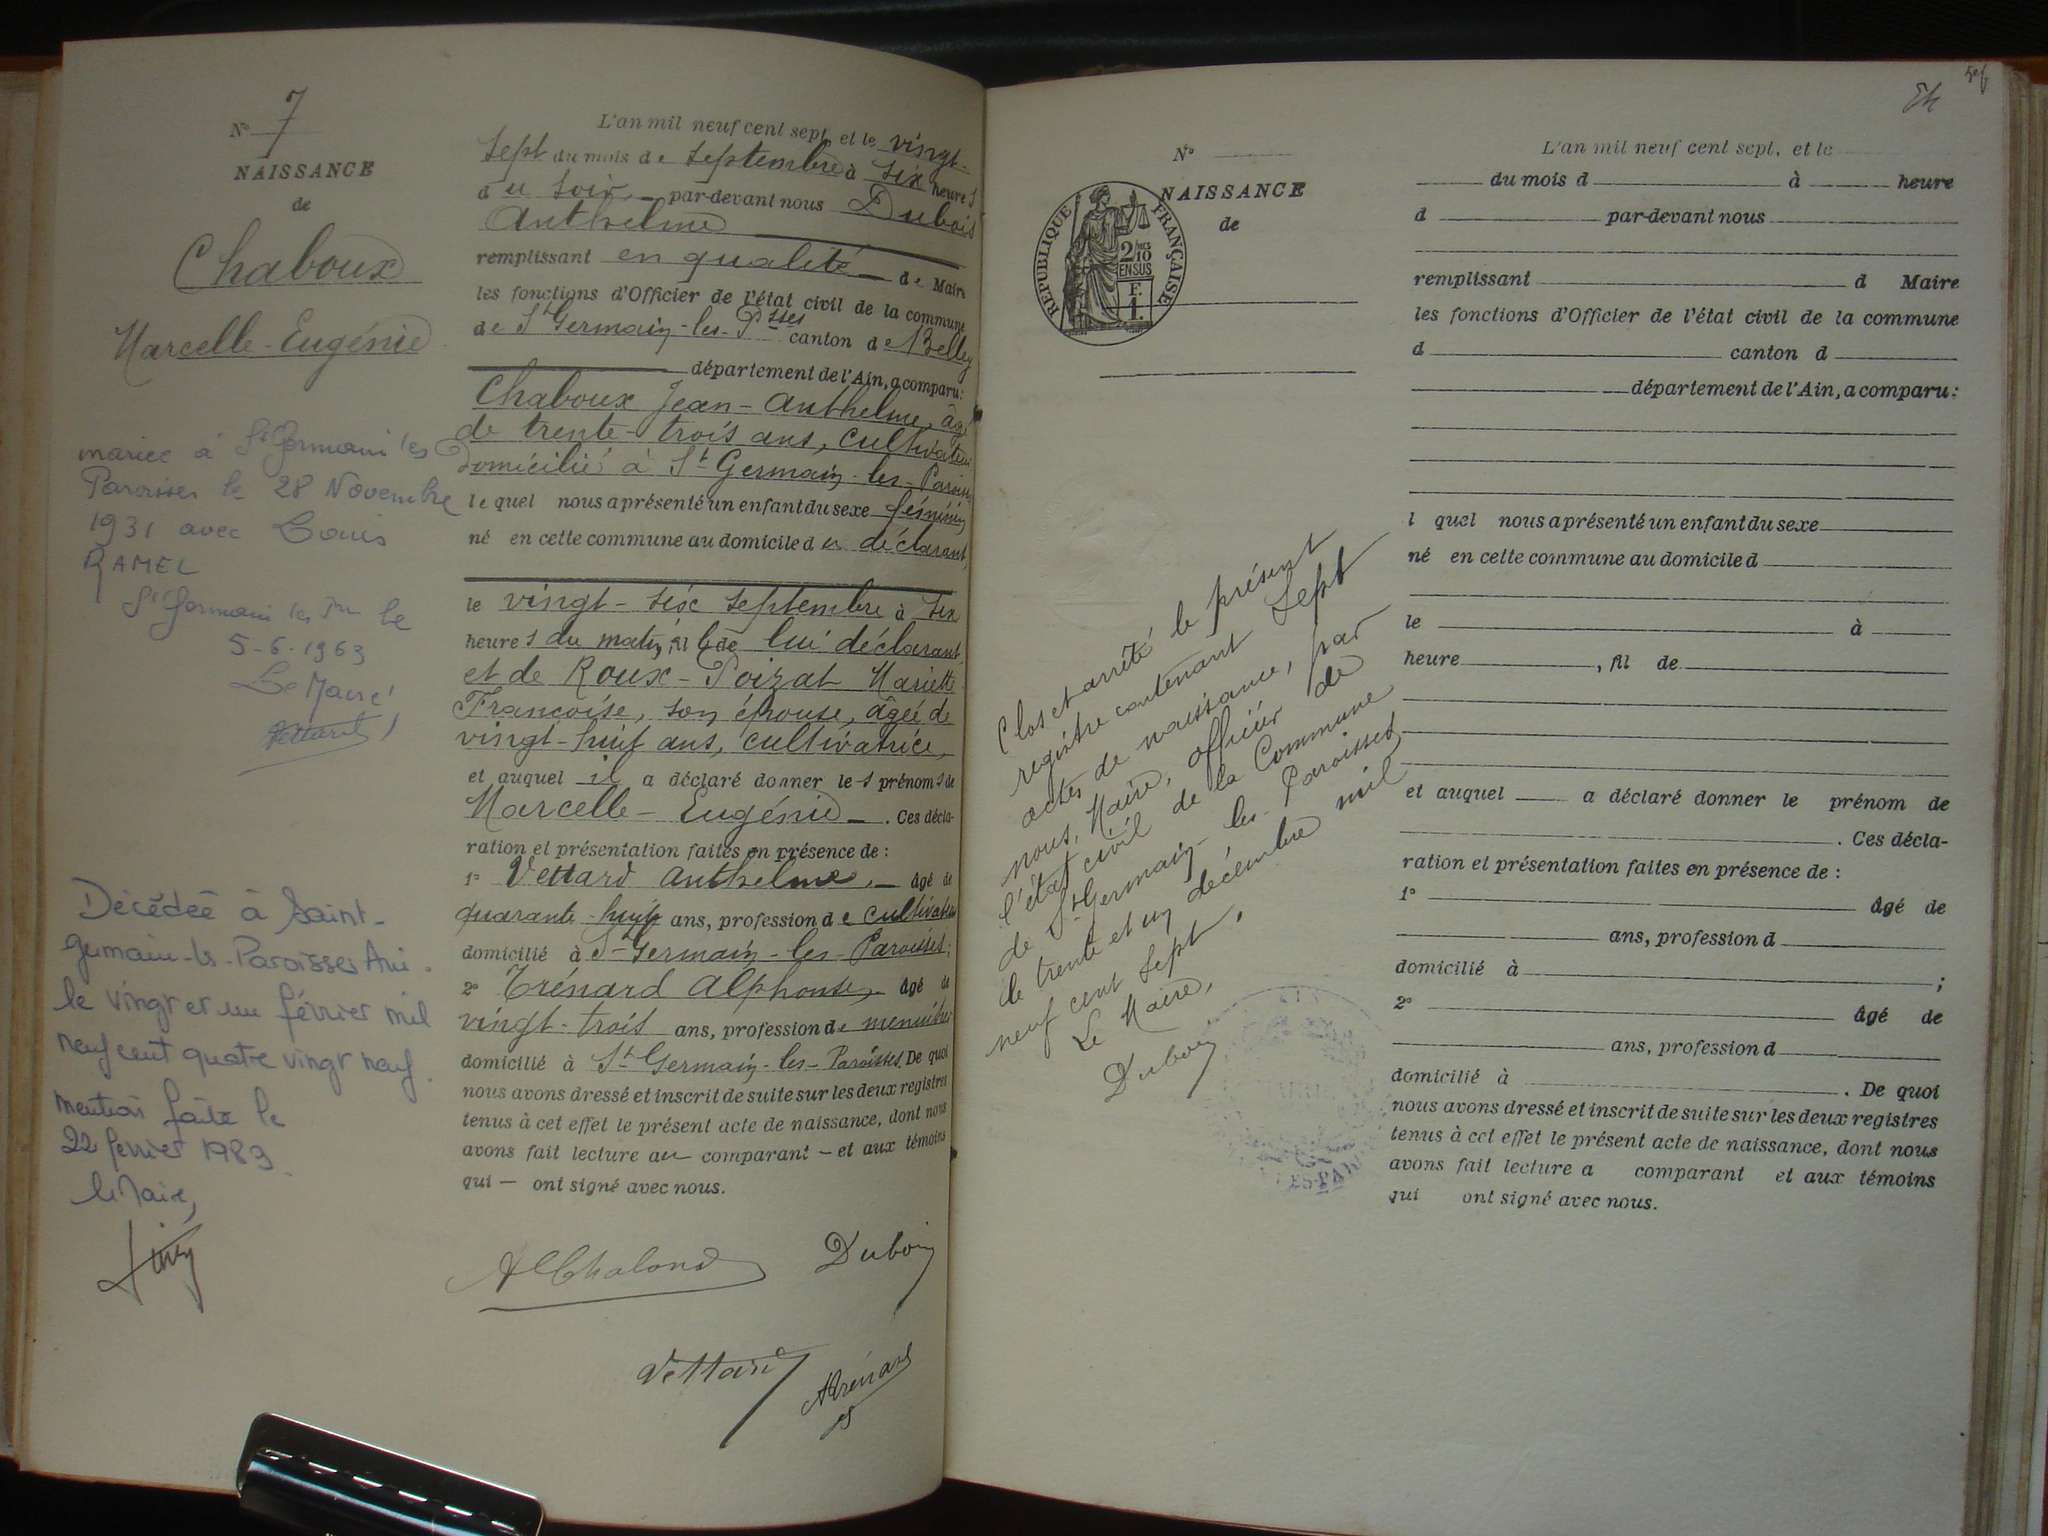 N° 7
NAISSANCE
de
Chaboux
Marcelle-Eugénie
mariée à St Germain les
Paroisses le 28 Novembre
1931 avec Louis
RAMEL
St Germain les Pses le
5-6-1963
Le Maire
Vettard
Décédée à Saint-
Germain-ls-Paroisses Ain.
le vingt et un février mil
neuf cent quatre vingt neuf.
mention faite le
22 février 1989.
le Maire,
L'an mil neuf cent sept, et le vingt-
sept du mois de septembre à six heures
du soir, par-devant nous Dubois
Anthelme
remplissant en qualité de Maire
les fonctions d'Officier de l'état civil de la commune
de St Germain-les-Psses canton de Belley
département de l'Ain, a comparu:
Chaboux Jean-Anthelme, âgé
de trente-trois ans, cultivateur
domicilié à St Germain-les-Paroisses
lequel nous a présenté un enfant du sexe féminin
né en cette commune au domicile du déclarant,
le vingt-six septembre à six
heures du matin, fille de lui déclarant,
et de Roux-Poizat Mariette
Françoise, son épouse, âgée de
vingt-huit ans, cultivatrice,
et auquel il a déclaré donner les prénoms de
Marcelle-Eugénie. Ces décla-
ration et présentation faites en présence de:
1° Vettard Anthelme, âgé de
quarante-huit ans, profession de cultivateur
domicilié à St Germain-les-Paroisses;
2° Trénard Alphonse, âgé de
vingt-trois ans, profession de menuisier
domicilié à St Germain-les-Paroisses. De quoi
nous avons dressé et inscrit de suite sur les deux registres
tenus à cet effet le présent acte de naissance, dont nous
avons fait lecture au comparant et aux témoins
qui ont signé avec nous.
Dubois
Vettard
ATrénard
N°
NAISSANCE
de
RÉPUBLIQUE FRANÇAISE
2/10
EN SUS
F.
1.
Clos et arrêté le présent
registre contenant sept
actes de naissance, par
nous, Maire, officier de
l'état civil de la Commune
de St Germain-les-Paroisses,
le trente et un décembre mil
neuf cent sept.
Le Maire,
Dubois
L'an mil neuf cent sept, et le
du mois d à heure
d par-devant nous
remplissant d Maire
les fonctions d'Officier de l'état civil de la commune
d canton d
département de l'Ain, a comparu:
l quel nous a présenté un enfant du sexe
né en cette commune au domicile d
le à
heure , fil de
et auquel a déclaré donner le prénom de
. Ces décla-
ration et présentation faites en présence de:
1° âgé de
ans, profession d
domicilié à ;
2° âgé de
ans, profession d
domicilié à . De quoi
nous avons dressé et inscrit de suite sur les deux registres
tenus à cet effet le présent acte de naissance, dont nous
avons fait lecture a comparant et aux témoins
qui ont signé avec nous.